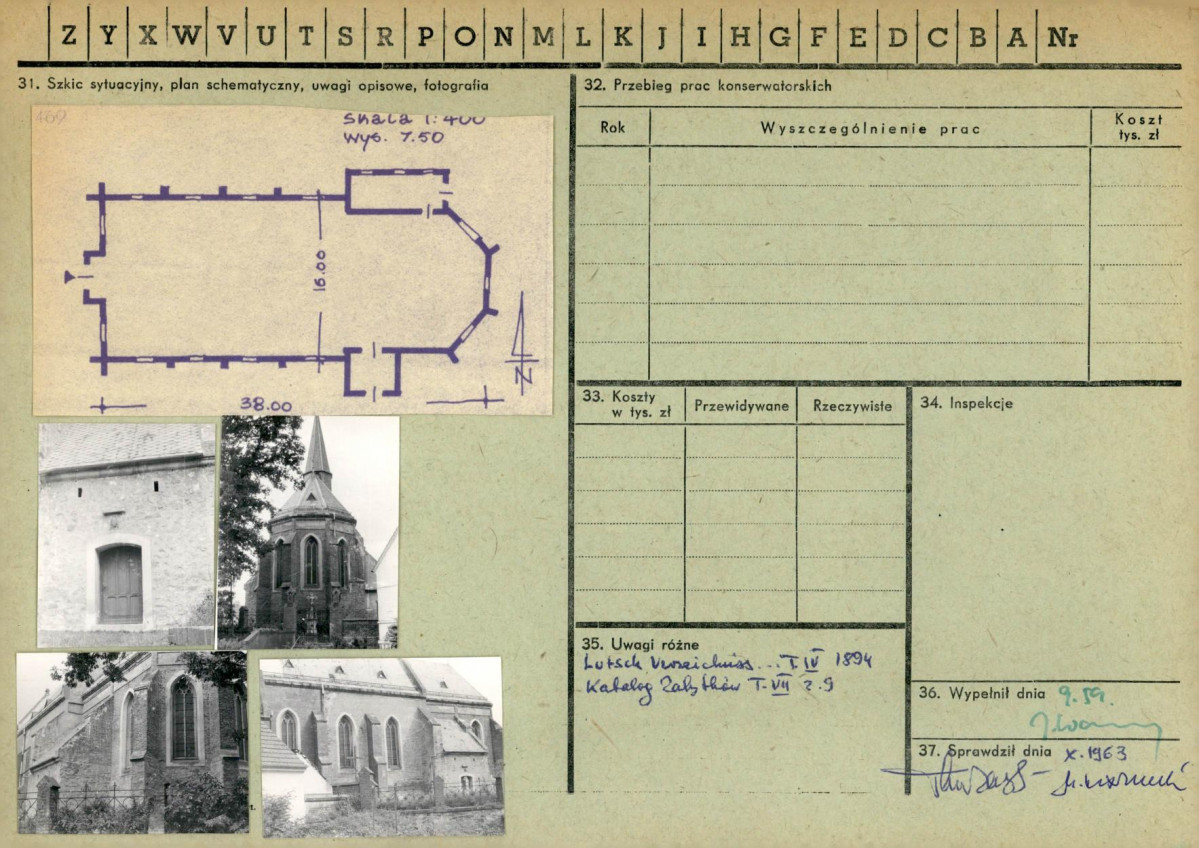 Z Y X W V U T S R P O N M L K J I H G F E D C B A Nr
31. Szkic sytuacyjny, plan schematyczny, uwagi opisowe, fotografia
469
skala 1:400
wys. 7.50
16.00
N
38.00
32. Przebieg prac konserwatorskich
Rok
Wyszczególnienie prac
Koszt
tys. zł
33. Koszty
w tys. zł
Przewidywane
Rzeczywiste
34. Inspekcje
35. Uwagi różne
Lutsch Verzeichniss... T IV 1894
Katalog Zabytków T. VII z. 9
36. Wypełnił dnia 9.59.
37. Sprawdził dnia X.1963